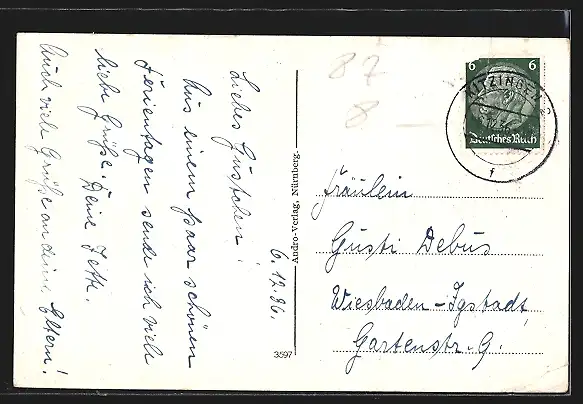 6.12.36.
Liebes Gustchen!
Aus einem paar schönen
Ferientagen sende ich viele
liebe Grüße. Deine Tetti.
Auch viele Grüße an deine Eltern!
Andro-Verlag, Nürnberg.
3597
87
8 —
6 6
Deutsches Reich
KITZINGEN 2
f
Fräulein
Gusti Debus
Wiesbaden-Igstadt
Gartenstr. 9.